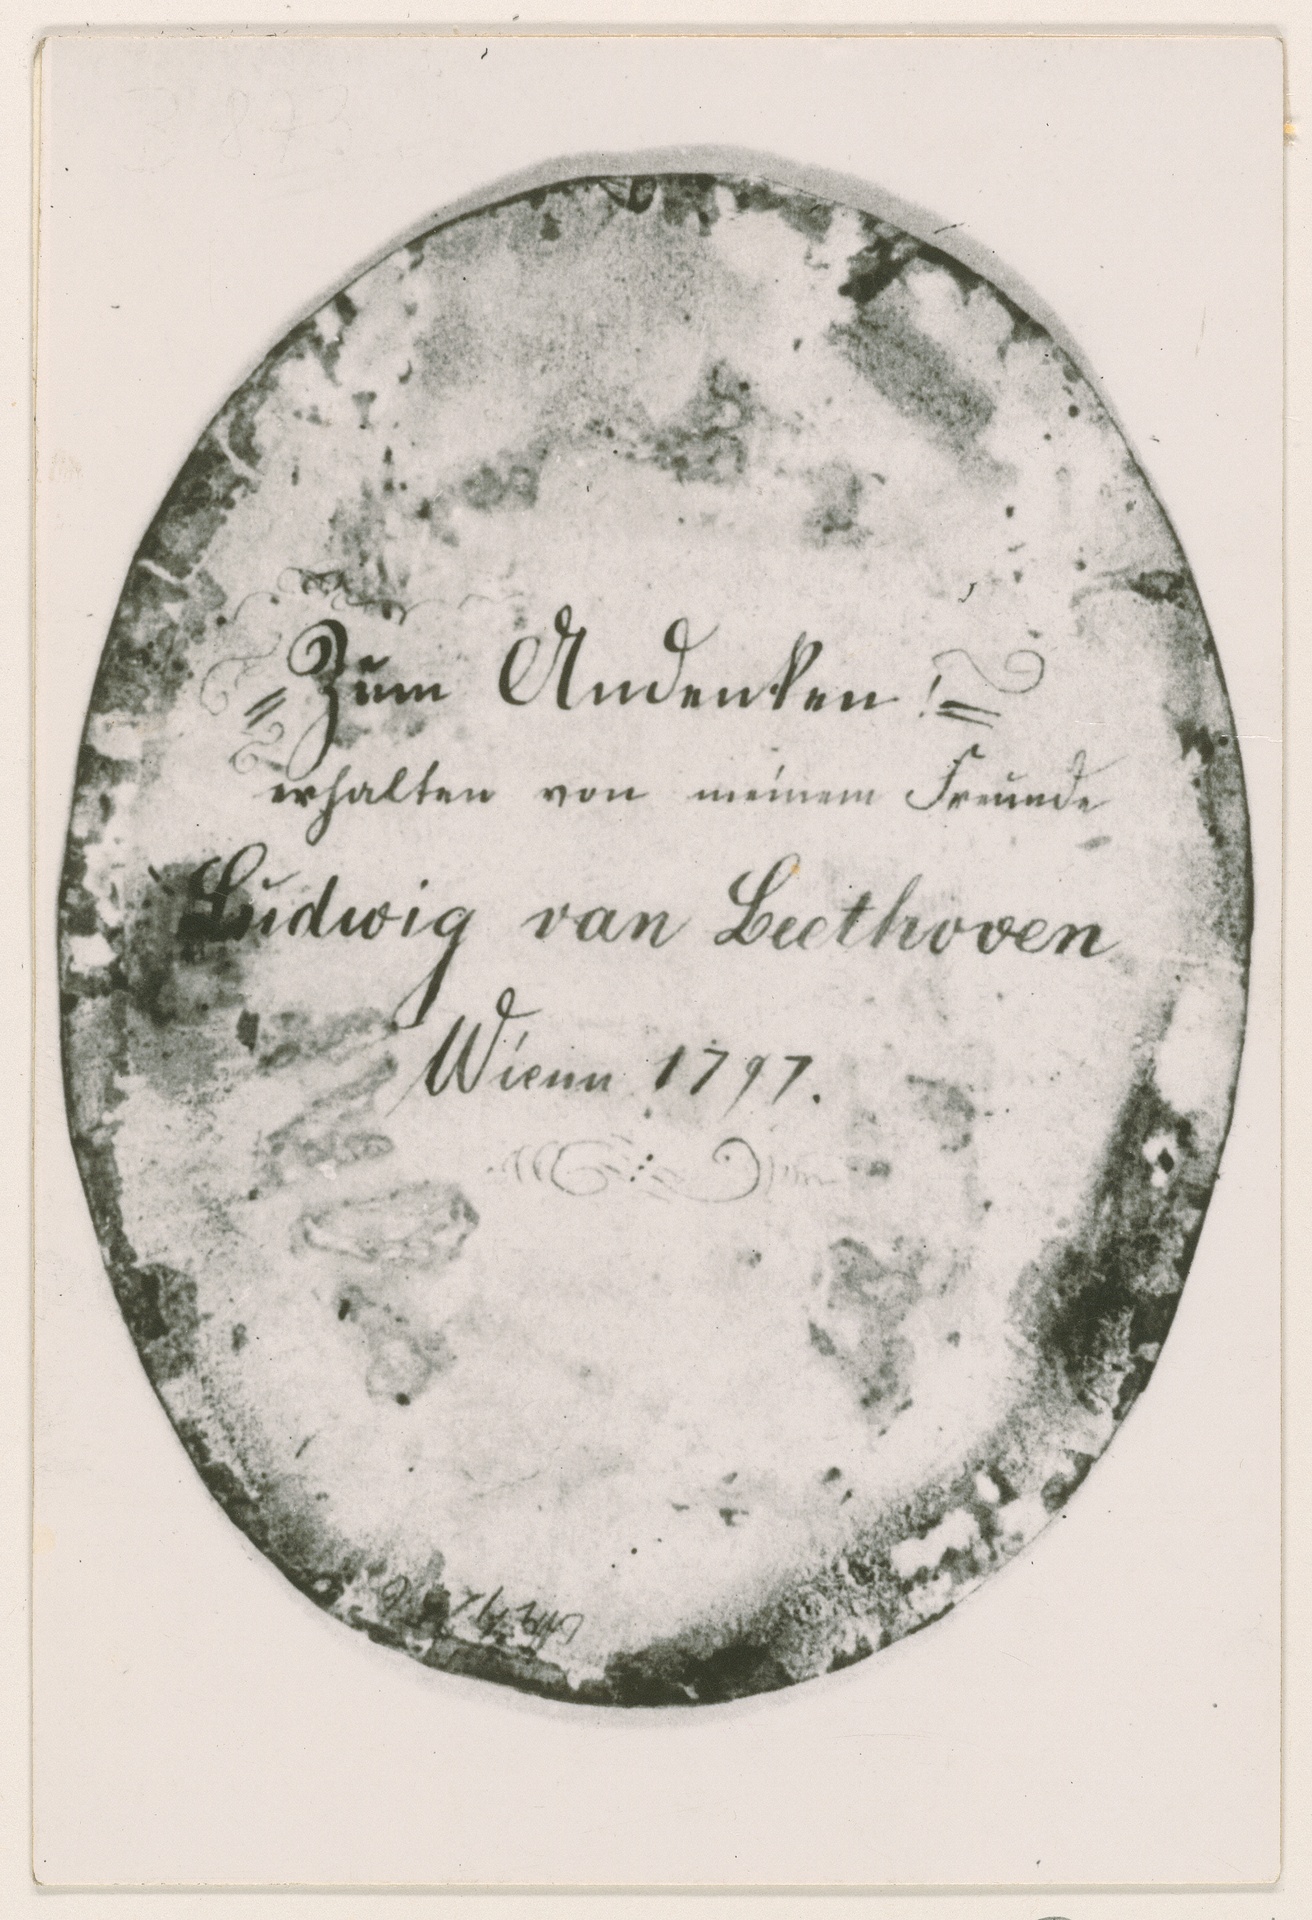 Zum Andenken!
erhalten von meinem Freunde
Ludwig van Beethoven
Wienn 1797.